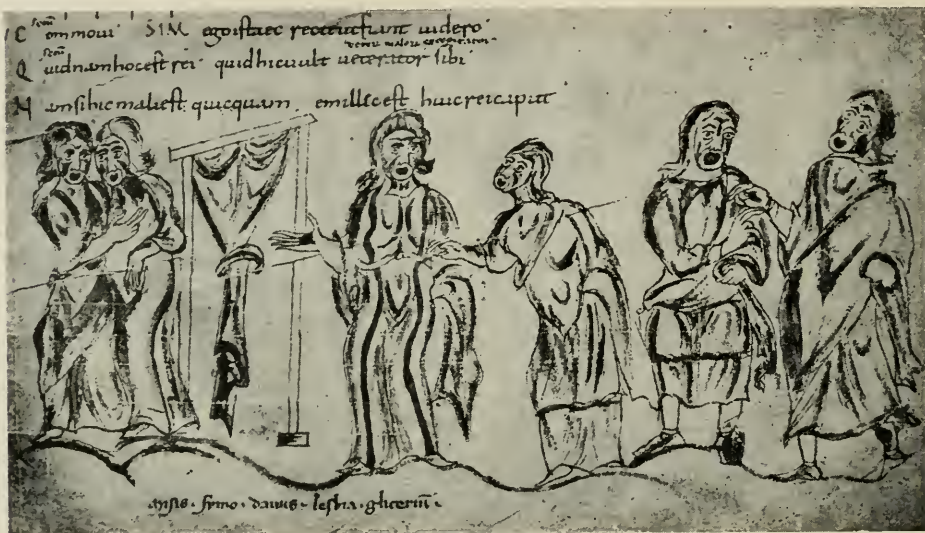 C ommoui SIM egoistaec recteutfiant uidero
Q uidnamhocest rei quidhicuult ueterator sibi
N amsihicmaliest quicquam emillicest huicreicaput
misis · simo · dauus · lesbia · gliceriū ·